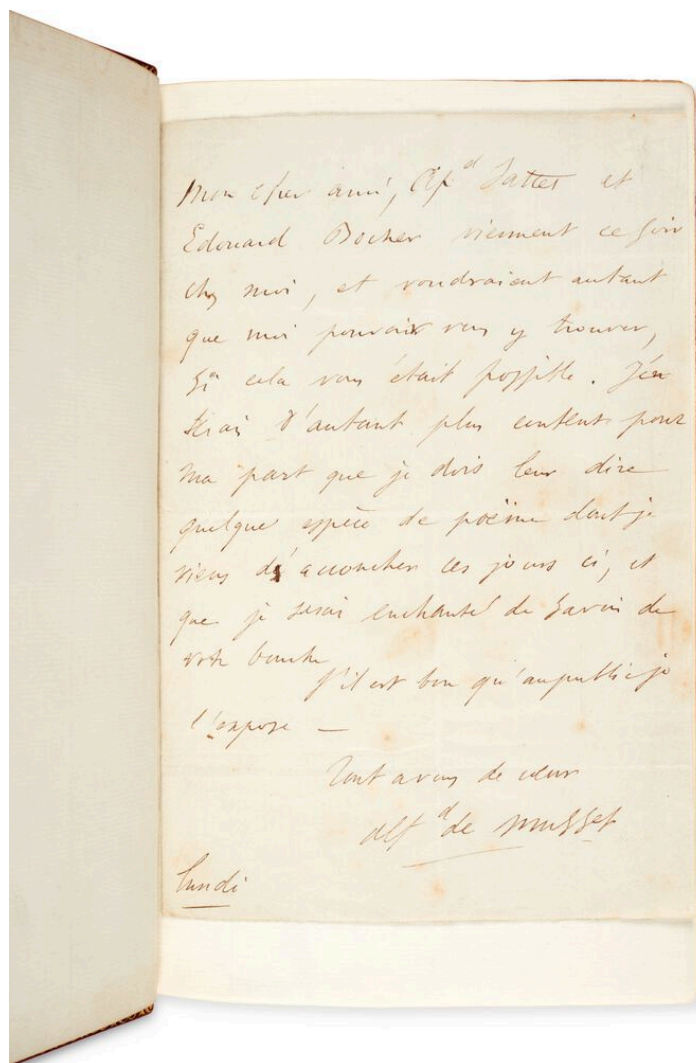 Mon cher ami, Alfd Tattet et
Edouard Bocher viennent ce soir
chez moi, et voudraient autant
que moi pouvoir vous y trouver,
si cela vous était possible. J'en
serais d'autant plus content pour
ma part que je dois leur dire
quelque espèce de poëme dont je
viens d'accoucher ces jours ci, et
que je serai enchanté de savoir de
votre bouche
s'il est bon qu'au public je
l'expose —
Tout à vous de cœur
Alfd de Musset
Lundi